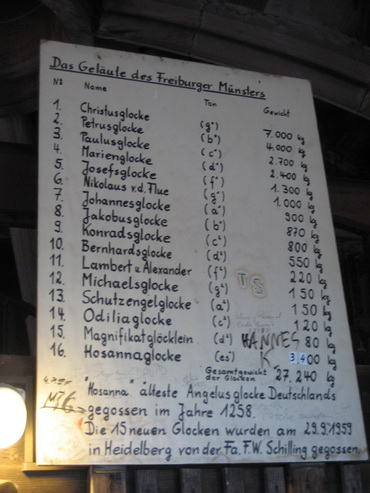 Das Geläute des Freiburger Münsters
No Name Ton Gewicht
1. Christusglocke (g°) 7.000 kg
2. Petrusglocke (b°) 4.000 kg
3. Paulusglocke (c¹) 2.700 kg
4. Marienglocke (d¹) 2.400 kg
5. Josefsglocke (f¹) 1.300 kg
6. Nikolaus v.d. Flue (g¹) 1.000 kg
7. Johannesglocke (a¹) 900 kg
8. Jakobusglocke (b¹) 870 kg
9. Konradsglocke (c²) 800 kg
10. Bernhardsglocke (d²) 550 kg
11. Lambert u. Alexander (f²) 220 kg
12. Michaelsglocke (g²) 150 kg
13. Schutzengelglocke (a²) 150 kg
14. Odiliaglocke (c³) 120 kg
15. Magnifikatglöcklein (d³) HANNES 80 kg
16. Hosannaglocke (es¹) K 3.400 kg
Gesamtgewicht der Glocken 27.240 kg
"Hosanna" älteste Angelusglocke Deutschlands
gegossen im Jahre 1258.
Die 15 neuen Glocken wurden am 29.9.1959
in Heidelberg von der Fa. F.W. Schilling gegossen